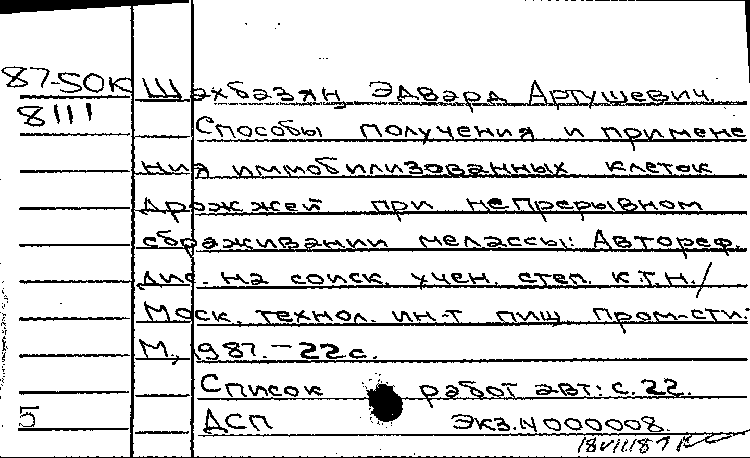 87-50К Шахбазян, Эдвард Артушевич.
8111 Способы получения и примене
ния иммобилизованных клеток
дрожжей при непрерывном
сбраживании мелассы: Автореф.
дис. на соиск. учен. степ. к.т.н./
Моск. технол. ин-т пищ. пром-сти.
М., 1987. - 22 с.
Список работ авт: с. 22.
5 ДСП Экз. N 000008.
18VIII87